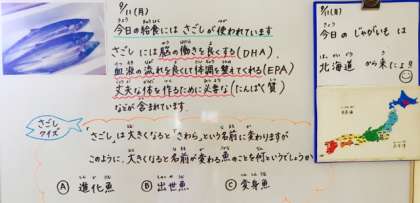 9/11(月)
今日の給食には さごしが使われています
さごし には脳の働きを良くする(DHA)、
血液の流れを良くして体調を整えてくれる(EPA)
丈夫な体を作るために必要な(たんぱく質)
などが含まれています。
さごし
クイズ
「さごし」は大きくなると「さわら」という名前に変わりますが
このように、大きくなると名前が変わる魚のことを何というでしょうか
Ⓐ 進化魚 Ⓑ 出世魚 Ⓒ 変身魚
9/11(月)
今日のじゃがいもは
北海道から来たよ!